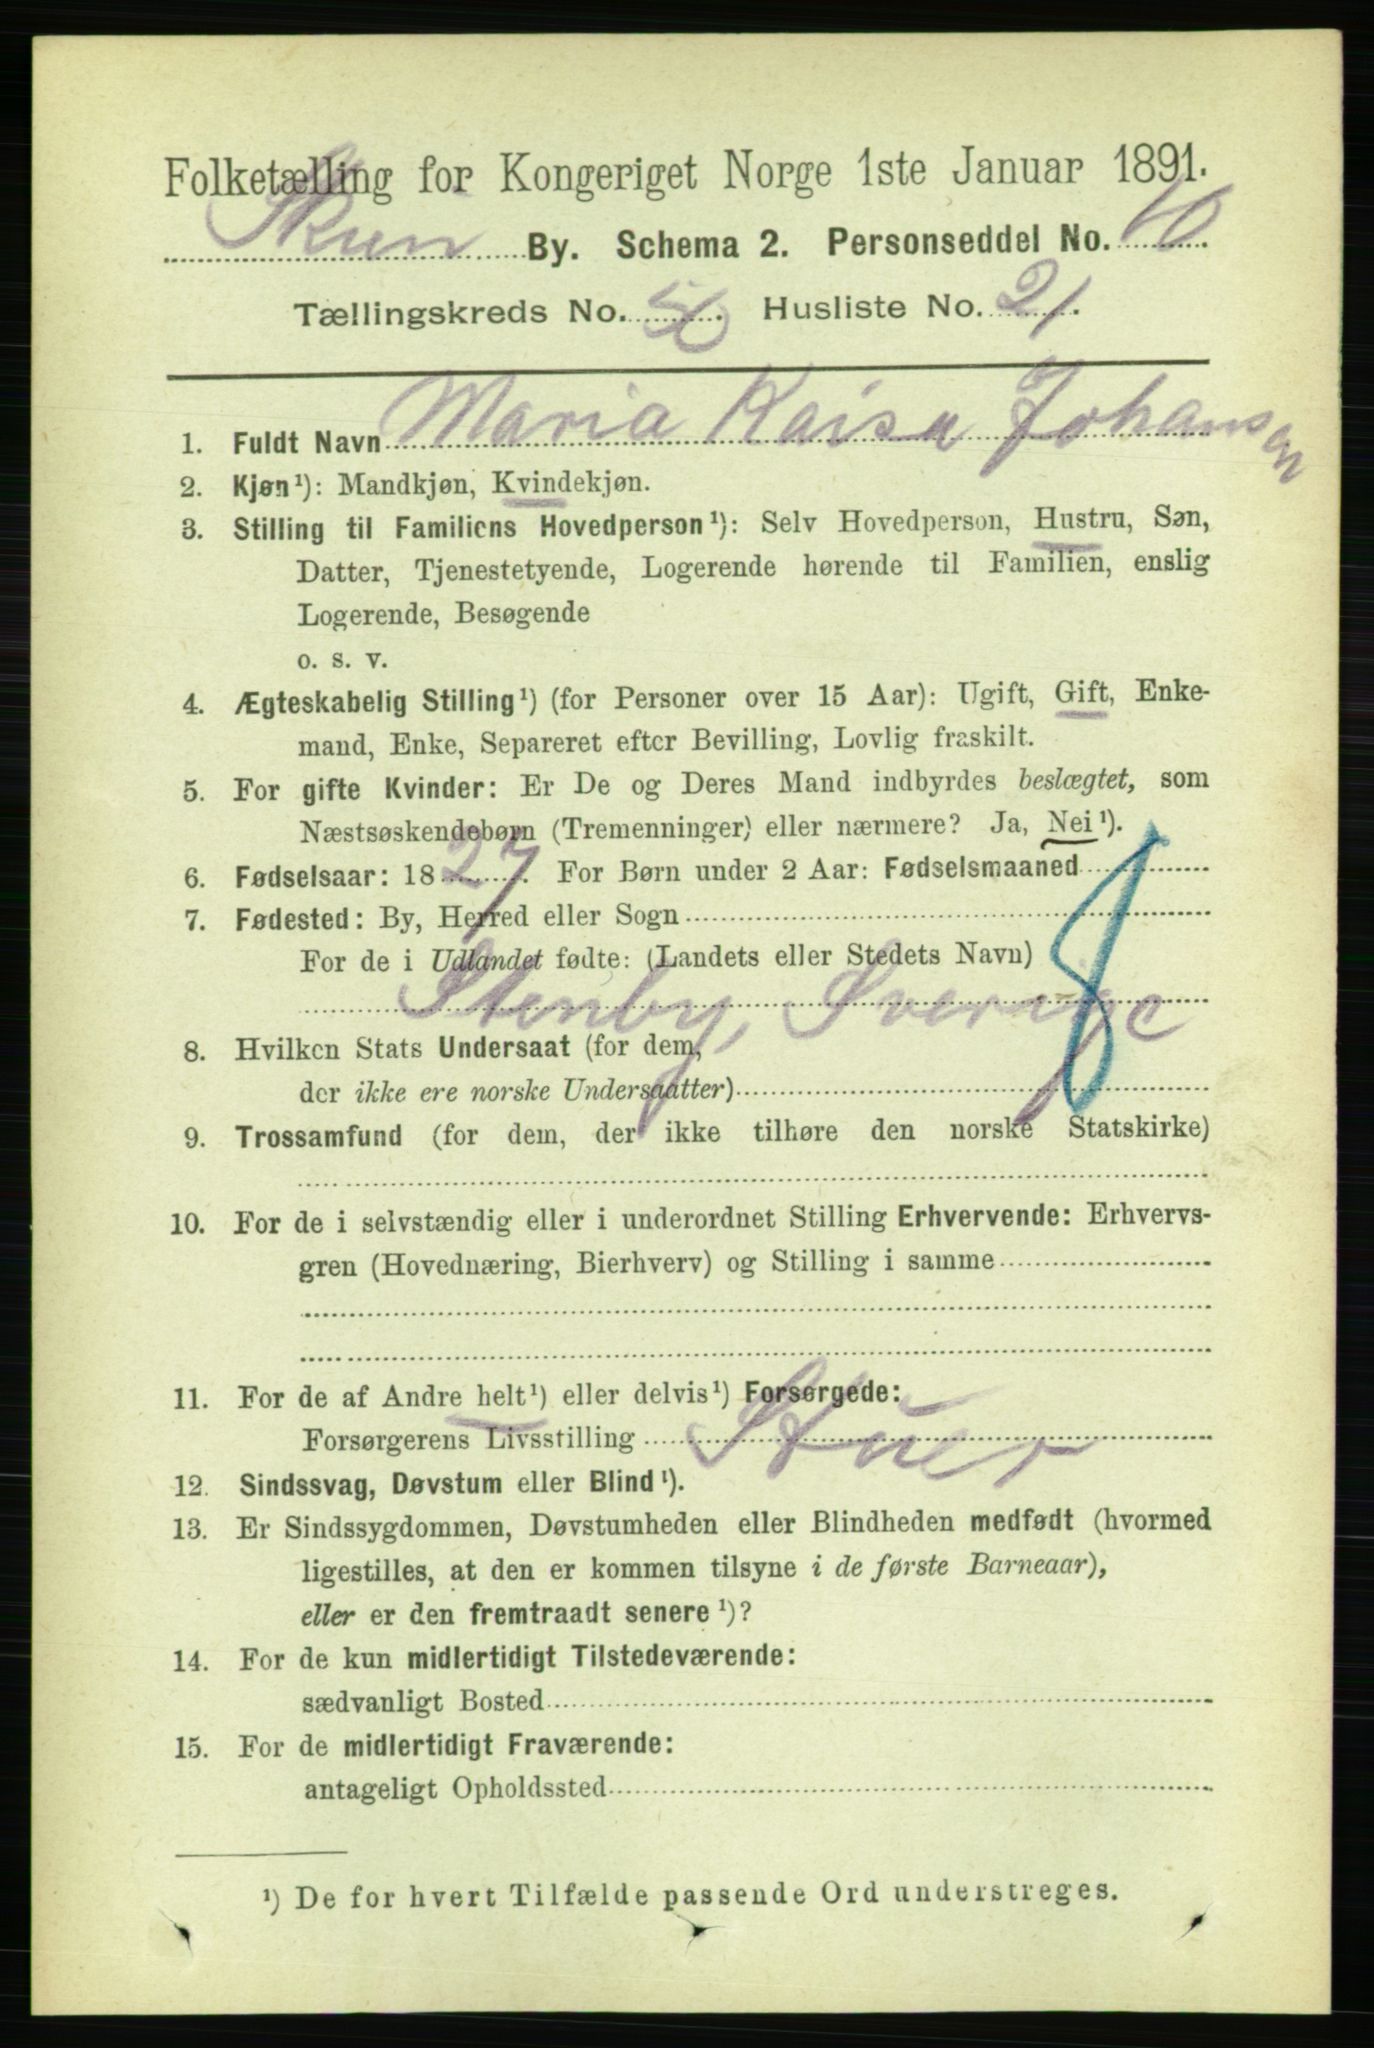 Folketælling for Kongeriget Norge 1ste Januar 1891.
Skien By. Schema 2. Personseddel No. 10.
Tællingskreds No. 50. Husliste No. 21.
1. Fuldt Navn Maria Kaisa Johansen
2. Kjøn¹): Mandkjøn, Kvindekjøn.
3. Stilling til Familiens Hovedperson¹): Selv Hovedperson, Hustru, Søn,
Datter, Tjenestetyende, Logerende hørende til Familien, enslig
Logerende, Besøgende
o. s. v.
4. Ægteskabelig Stilling¹) (for Personer over 15 Aar): Ugift, Gift, Enke-
mand, Enke, Separeret efter Bevilling, Lovlig fraskilt.
5. For gifte Kvinder: Er De og Deres Mand indbyrdes beslægtet, som
Næstsøskendebørn (Tremenninger) eller nærmere? Ja, Nei¹).
6. Fødselsaar: 1827. For Børn under 2 Aar: Fødselsmaaned
7. Fødested: By, Herred eller Sogn
For de i Udlandet fødte: (Landets eller Stedets Navn)
Stenby, Sverige
8. Hvilken Stats Undersaat (for dem,
der ikke ere norske Undersaatter)
9. Trossamfund (for dem, der ikke tilhøre den norske Statskirke)
10. For de i selvstændig eller i underordnet Stilling Erhvervende: Erhvervs-
gren (Hovednæring, Bierhverv) og Stilling i samme
11. For de af Andre helt¹) eller delvis¹) Forsørgede:
Forsørgerens Livsstilling
12. Sindssvag, Døvstum eller Blind¹).
13. Er Sindssygdommen, Døvstumheden eller Blindheden medfødt (hvormed
ligestilles, at den er kommen tilsyne i de første Barneaar),
eller er den fremtraadt senere¹)?
14. For de kun midlertidigt Tilstedeværende:
sædvanligt Bosted
15. For de midlertidigt Fraværende:
antageligt Opholdssted
¹) De for hvert Tilfælde passende Ord understreges.